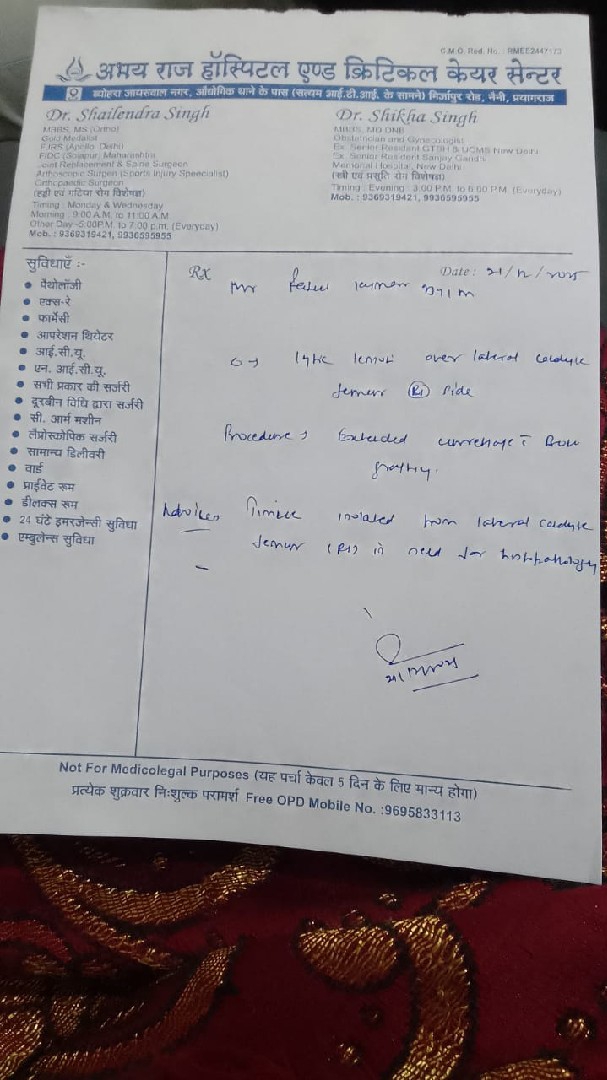 अभय राज हॉस्पिटल एण्ड क्रिटिकल केयर सेन्टर
औद्योगिक थाने के पास (सत्यम आई.टी.आई. के सामने) मिर्जापुर रोड, नैनी, प्रयागराज
Dr. Shailendra Singh
MBBS, MS (Ortho)
Gold Medalist
Joint Replacement & Spine Surgeon
Orthopaedic Surgeon
(हड्डी एवं गठिया रोग विशेषज्ञ)
Timing : Monday & Wednesday
Morning : 9:00 A.M. to 11:00 A.M
Other Day -5:00P.M. to 7:00 p.m. (Everyday)
Mob. : 9369319421, 9930595955
Dr. Shikha Singh
MBBS, MD DNB
Obstetrician and Gynecologist
Ex. Senior Resident GTBH & UCMS New Delhi
Ex. Senior Resident Sanjay Gandhi
Memorial Hospital, New Delhi
(स्त्री एवं प्रसूति रोग विशेषज्ञ)
Timing : Evening : 3:00 P.M. to 6:00 P.M. (Everyday)
Mob. : 9369319421, 9930595955
सुविधाएँ :-
पैथोलॉजी
एक्स-रे
फार्मेसी
आपरेशन थियेटर
आई.सी.यू.
एन. आई.सी.यू.
सभी प्रकार की सर्जरी
दूरबीन विधि द्वारा सर्जरी
सी. आर्म मशीन
लैप्रोस्कोपिक सर्जरी
सामान्य डिलीवरी
वार्ड
प्राईवेट रूम
डीलक्स रूम
24 घंटे इमरजेन्सी सुविधा
एम्बुलेन्स सुविधा
RX
Date : 21/12/2025
Mr
over lateral condyle
femur (Rt) side
Procedure Extended currettage
Advice isolated from lateral condyle
femur (Rt) in need for histopathology
Not For Medicolegal Purposes (यह पर्चा केवल 5 दिन के लिए मान्य होगा)
प्रत्येक शुक्रवार निःशुल्क परामर्श Free OPD Mobile No. :9695833113